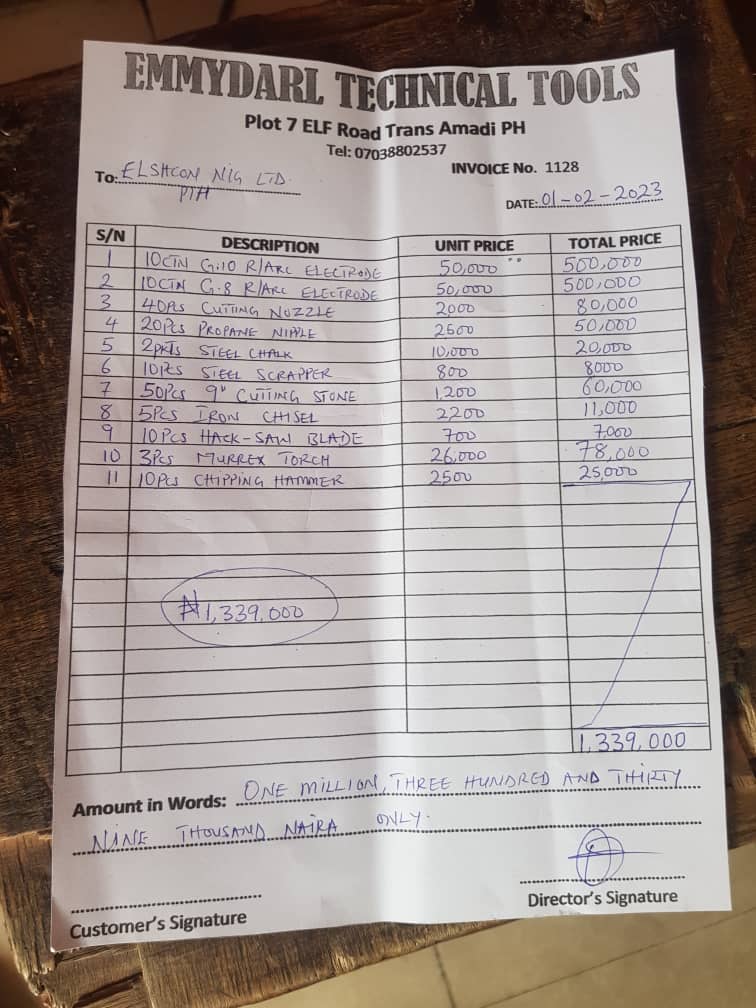 EMMYDARL TECHNICAL TOOLS
Plot 7 ELF Road Trans Amadi PH
Tel: 07038802537
INVOICE No. 1128
To: ELSHCON NIG LTD.
PH
DATE: 01-02-2023
S/N DESCRIPTION UNIT PRICE TOTAL PRICE
1 10CTN G.10 R/ARC ELECTRODE 50,000 500,000
2 10CTN G.8 R/ARC ELECTRODE 50,000 500,000
3 40Pcs CUTTING NOZZLE 2000 80,000
4 20Pcs PROPANE NIPPLE 2500 50,000
5 2pkts STEEL CHALK 10,000 20,000
6 10Pcs STEEL SCRAPPER 800 8000
7 50Pcs 9" CUTTING STONE 1,200 60,000
8 5Pcs IRON CHISEL 2200 11,000
9 10Pcs HACK-SAW BLADE 700 7,000
10 3Pcs MURREX TORCH 26,000 78,000
11 10Pcs CHIPPING HAMMER 2500 25,000
₦1,339,000
1,339,000
Amount in Words: ONE MILLION, THREE HUNDRED AND THIRTY
NINE THOUSAND NAIRA ONLY.
Customer's Signature
Director's Signature